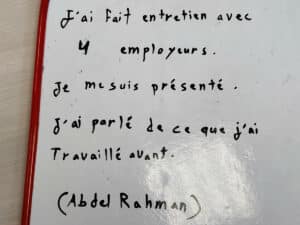 J'ai fait entretien avec
4 employeurs.
Je me suis présenté.
J'ai parlé de ce que j'ai
Travaillé avant.
(Abdel Rahman)